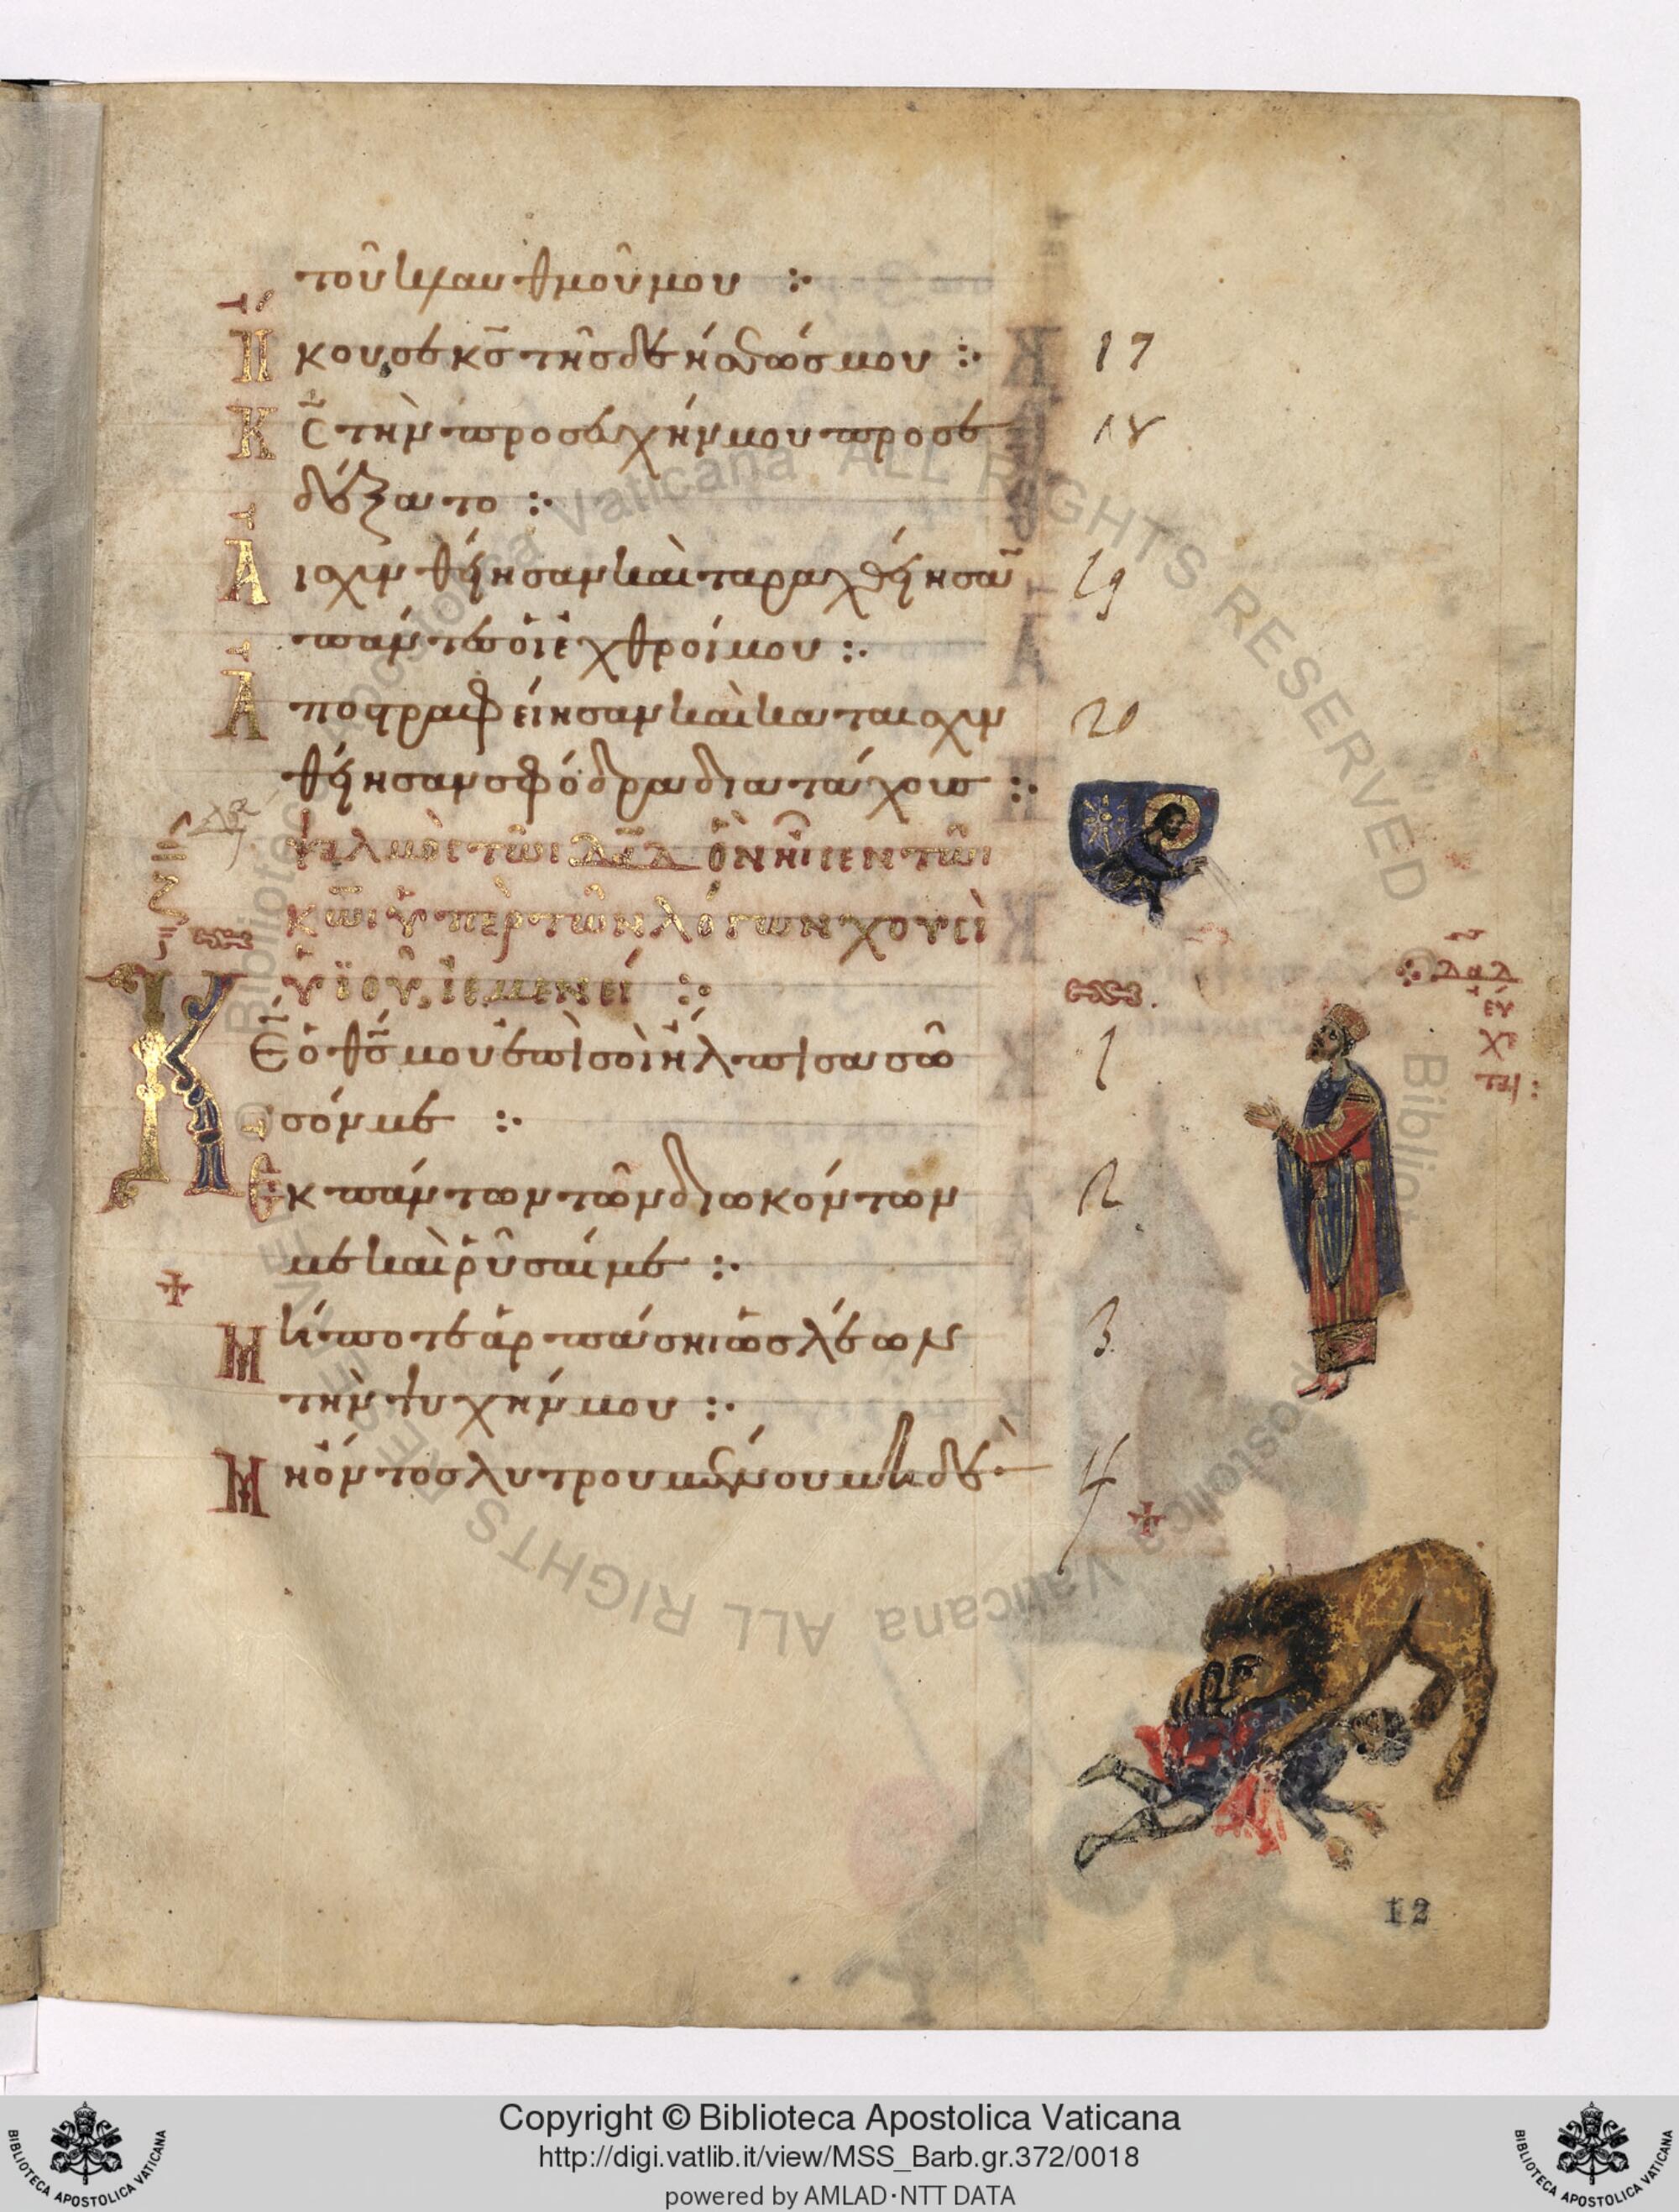 τοῦ κλαυθμοῦ μου :·
Ἤ
κουσε κ̅ς̅ τῆς δεήσεώς μου :· 17
Κ̅ς̅ τὴν προσευχήν μου προσε 18
δέξατο :·
Αἰσχυνθείησαν καὶ ταραχθείησα̅ 19
πάντες οἱ ἐχθροί μου :·
Ἀποστραφείησαν καὶ καταισχυν 20
θείησαν σφόδρα διατάχους :·
ψαλμὸς τῶι δα̅δ̅ ὃν ἦισεν τῶι
κ̅ω̅ι ὑπὲρ τῶν λόγων χουσὶ
ὑϊοῦ ἰεμενεί :·
Κ̅Ε̅ ὁ θ̅ς̅ μου ἐπὶ σοὶ ἤλπισα σῶ 1
σόν με :·
Ἐκ πάντων τῶν διωκόντων 2
με καὶ ῥῦσαί με :·
Μήποτε ἁρπάσηι ὡς λέων 3
τὴν ψυχήν μου :·
Μὴ ὄντος λυτρουμένου μηδὲ 4
δα̅δ̅
εὐ
χε
ται :
12
© Biblioteca Apostolica Vaticana ALL RIGHTS RESERVED
© Biblioteca Apostolica Vaticana ALL RIGHTS RESERVED
Copyright © Biblioteca Apostolica Vaticana
http://digi.vatlib.it/view/MSS_Barb.gr.372/0018
powered by AMLAD·NTT DATA
BIBLIOTECA APOSTOLICA VATICANA
BIBLIOTECA APOSTOLICA VATICANA